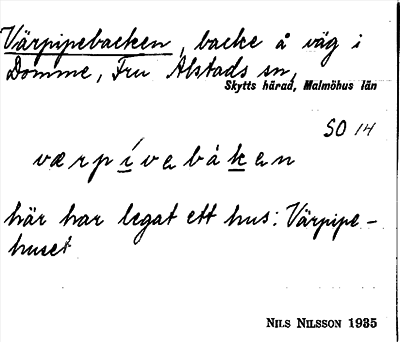 Värpipebacken, backe å väg i
Domme, Fru Alstads sn,
Skytts härad, Malmöhus län
SO 14
værpívebáken
här har legat ett hus: Värpipe-
huset
NILS NILSSON 1935